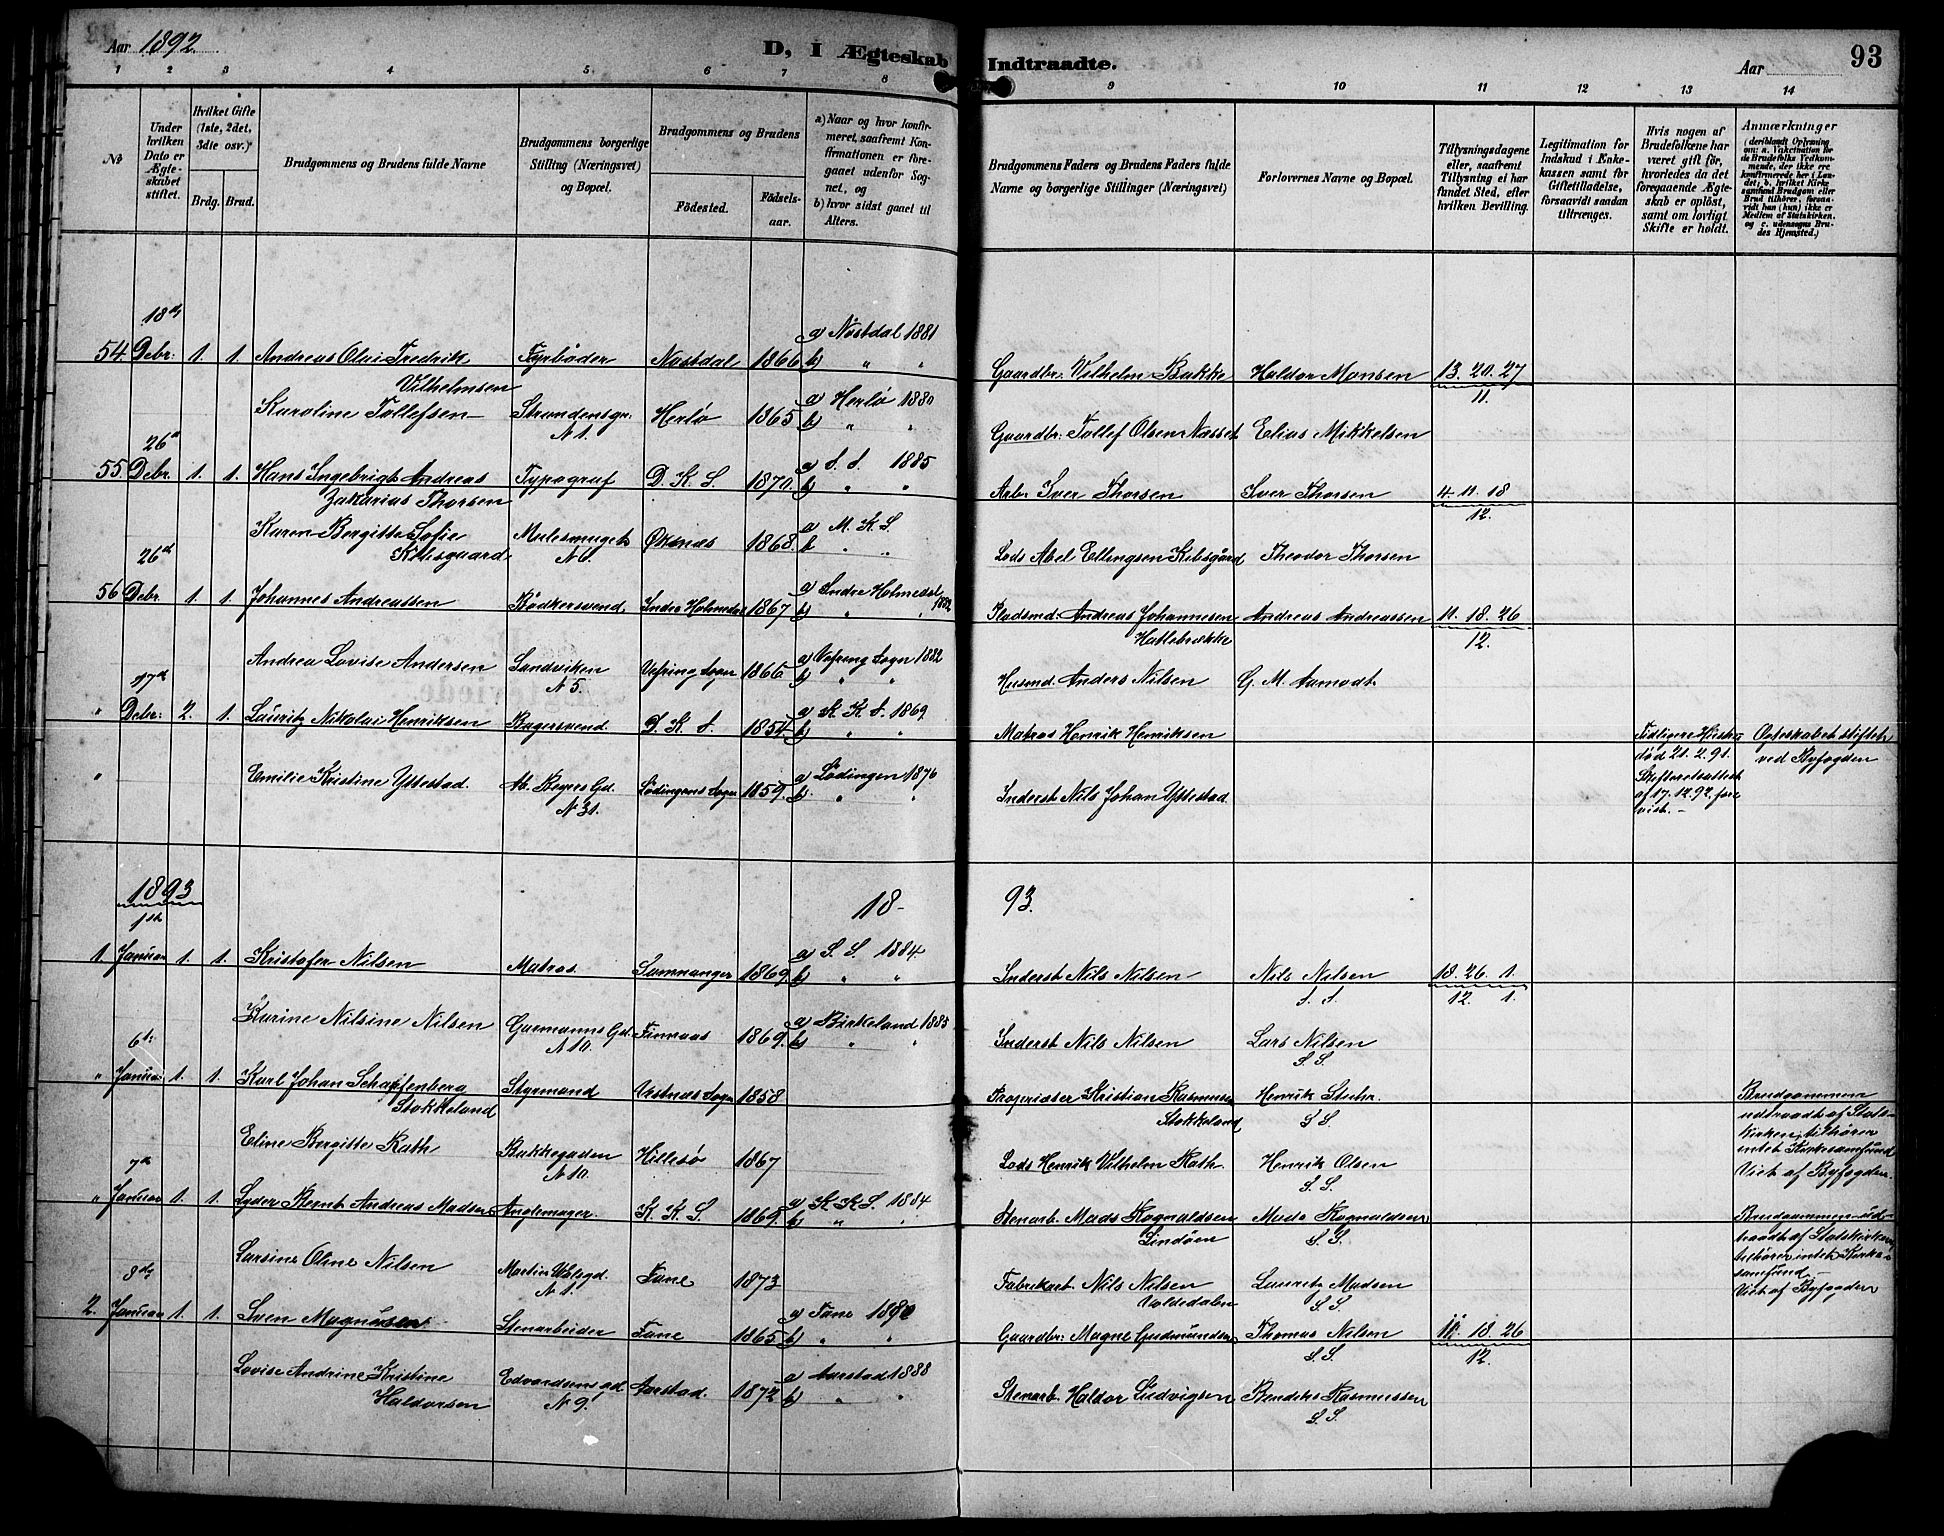 Aar 1892.
D, I Ægteskab Indtraadte.
Aar
93
1 2 3 4 5 6 7 8 9 10 11 12 13 14
No
Under hvilken Dato er Ægteskabet stiftet.
Hvilket Gifte (1ste, 2det, 3die osv.)
Brdg. Brud.
Brudgommens og Brudens fulde Navne
Brudgommens borgerlige Stilling (Næringsvei) og Bopæl.
Brudgommens og Brudens
Födested.
Födselsaar.
a) Naar og hvor konfirmeret, saafremt Konfirmationen er foregaaet udenfor Sognet, og
b) hvor sidst gaaet til Alters.
Brudgommens Faders og Brudens Faders fulde Navne og borgerlige Stillinger (Næringsvei)
Forlovernes Navne og Bopæl.
Tillysningsdagene eller, saafremt Tillysning ei har fundet Sted, efter hvilken Bevilling.
Legitimation for Indskud i Enkekassen samt for Giftetilladelse, forsaavidt saadan tiltrænges.
Hvis nogen af Brudefolkene har været gift för, hvorledes da det foregaaende Ægteskab er oplöst, samt om lovligt Skifte er holdt.
Anmærkninger (deriblandt Oplysning om: a. Vakcination for de Brudefolks Vedkommende, der ikke ere konfirmerede her i Landet; b. hvilket Kirkesamfund Brudgom eller Brud tilhörer, forsaavidt han (hun) ikke er Medlem af Statskirken. og c. udensogns Brudes Hjemsted.)
18de
54 Debr. 1. 1. Andreas Olai Fredrik Vilhelmsen Fyrböder Nostdal 1866 a) Nostdal 1881 b) " " Gaardbr. Vilhelm Bakke Haldor Monsen 13. 20. 27 11.
Karoline Tollefsen Strandensgr. N 1. Herlø 1865 a) Herlø 1880 b) " " Gaardbr. Tollef Olsen Nasset Elias Mikkelsen
26de
55. Debr. 1. 1. Hans Ingebrigt Andreas Zakarias Thorsen Typograf D. K. S. 1870. a) S. S. 1885 b) " " Arbr. Iver Thorsen Iver Thorsen 4. 11. 18 12.
Karen Bergitte Sofie Kibsgaard Mulesmuget N 6. Øksnæs 1868. a) M. K. S. b) " " Lods Abel Ellingsen Kibsgård Theodor Thorsen
26de
56 Debr. 1. 1. Johannes Andreassen Bødkersvend Indre Holmedal 1867 a) Indre Holmedal 1882 b) " " Pladsmd. Andreas Johannesen Hatlebrække Andreas Andreassen 11. 18. 26 12.
Andrea Lovise Andersen Sandviken N 5. Vefring Sogn 1866 a) Vefring Sogn 1882 b) " " Husmd. Anders Nilsen G. M. Aamodt.
17de
" Debr: 2. 1. Lauritz Nikolai Henriksen Bagersvend D. K. S. 1854 a) K. K. S. 1869 b) " " Matros Henrik Henriksen
Tidligere Hustru död 21. 2. 91. Skifteretsattest af 17. 12. 92 forevist. -
Ægteskabet stiftet ved Byfogden
" Emilie Kristine Yttestad. Ab. Begers Gd. N 31. Lødingens Sogn 1859. a) Lødingen 1876 b) " " Inderst Nils Johan Yttestad.
1893
18- 93.
1ste
1. Januar 1. 1. Kristofer Nilsen Matros Samnanger 1869. a) S. S. 1884 b) " " Inderst Nils Nilsen Nils Nilsen S. S. 18. 26. 1. 12. 1.
Karine Nilsine Nilsen Garmanns Gd. N 10. Finnaas 1869. a) Birkeland 1885 b) " " Inderst Nils Nilsen Lars Nilsen S. S.
6te
" Januar 1. 1. Karl Johan Scharffenberg Stokkeland Styrmand Vestnæs Sogn 1858 Proprietær Kristian Rasmus Stokkeland Henrik Stuhr. S. S.
Brudgommen udtraadt af Statskirken, tilhører intet Kirkesamfund Viet af Byfogden.
Eline Bergitte Rath Bakkegaden N 10. Hillesø 1867 Lods Henrik Vilhelm Rath. Henrik Olsen S. S.
7de
" Januar 1. 1. Lyder Bernt Andreas Madsen Anglemager. K. K. S. 1869. a) K. K. S. 1884 b) " " Stenarb. Mads Ragnaldsen Lindöen Mads Ragnaldsen S. S.
Brudgommen udtraadt af Statskirken, tilhører intet Kirkesamfund Viet af Byfogden
Larsine Oline Nilsen Martin Walsgd. N 1. Fane 1873 Fabrikarb. Nils Nilsen Valdedalen Lauritz Madsen S. S.
8de
2. Januar 1. 1. Sven Magnusen Stenarbeider Fane 1865 a) Fane 1880 b) " " Gaardbr. Magne Gudmundsen Thomas Nilsen S. S. 11. 18. 26 12.
Lovise Andrine Kristine Haldorsen Edvardsens gd. N 9. Aarstad. 1872 a) Aarstad 1888 b) " " Stenarb. Haldor Ludvigsen Bendiks Rasmussen S. S.